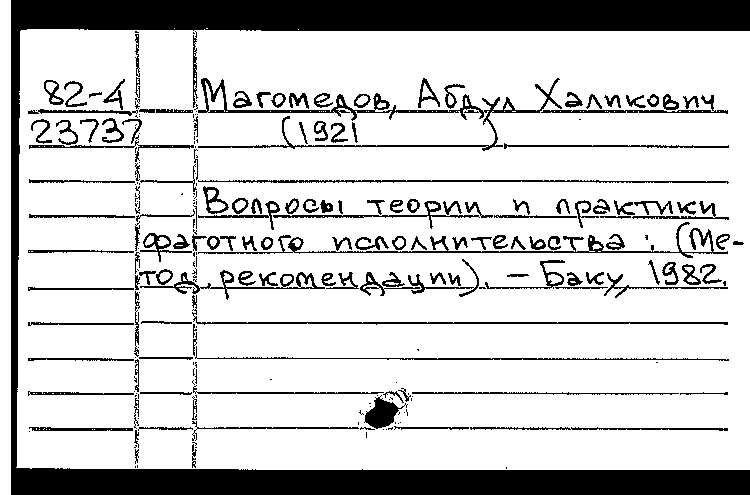 82-4 Магомедов, Абдул Халикович
23737 (1921 ).
Вопросы теории и практики
фаготного исполнительства : (Ме-
тод. рекомендации). – Баку, 1982.